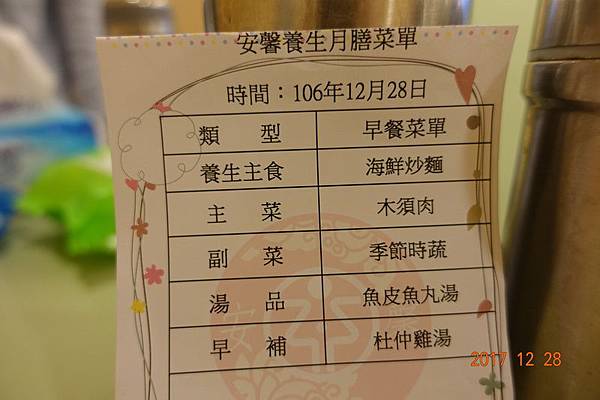 安馨養生月膳菜單
時間：106年12月28日
類 型 早餐菜單
養生主食 海鮮炒麵
主 菜 木須肉
副 菜 季節時蔬
湯 品 魚皮魚丸湯
早 補 杜仲雞湯
2017 12 28